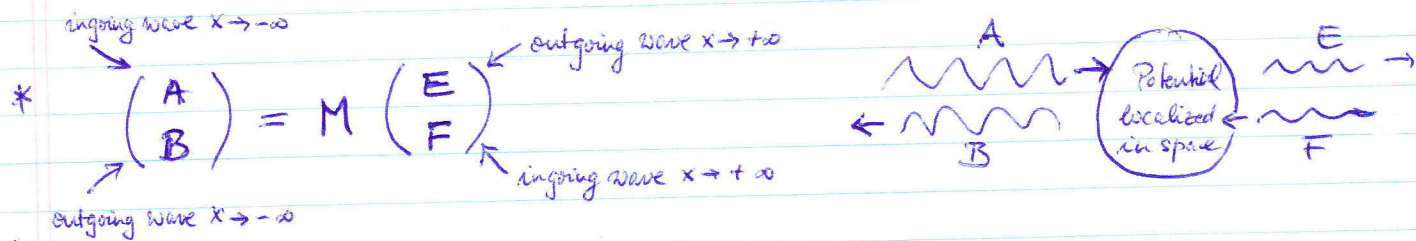 ingoing wave x → -∞
outgoing wave x → +∞
* ( A B ) = M ( E F )
ingoing wave x → +∞
outgoing wave x → -∞
A
B
Potential
localized
in space
E
F